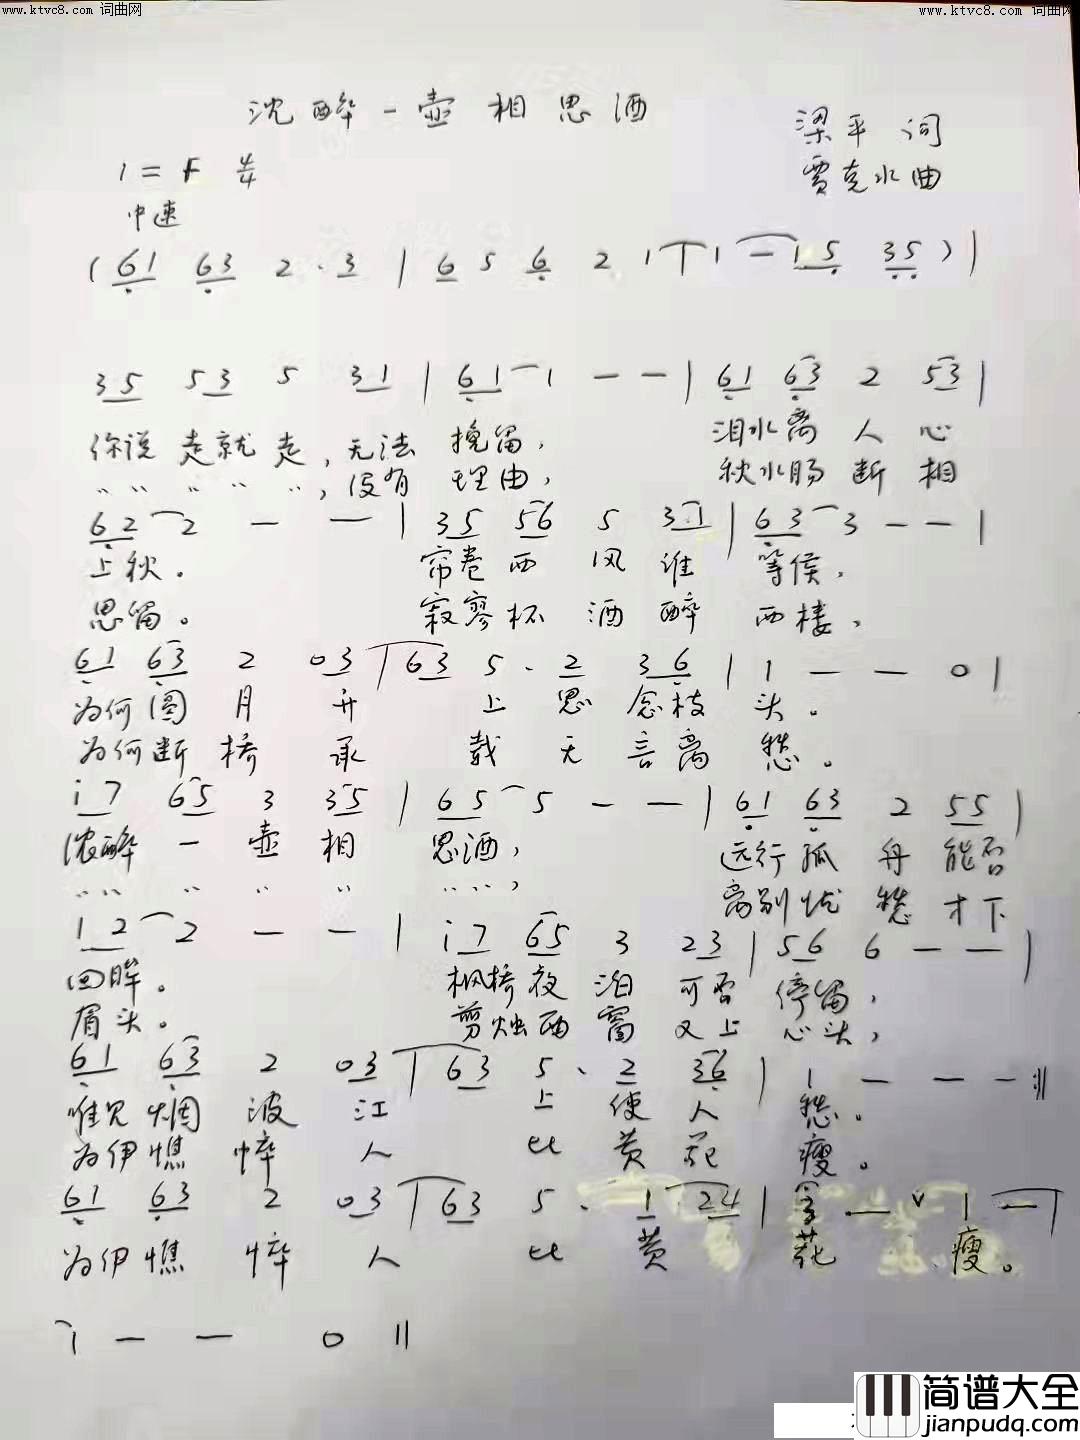 www.ktvc8.com 词曲网
www.ktvc8.com 词曲网
沈醉一壶相思酒
梁平 词
贾克水曲
1=F 4/4
中速
(61 63 2·3 | 6 5 6 2 1 | 1 — 15 35) |
35 53 5 31 | 61 1 — — | 61 63 2 53 |
你说走就走,无法 挽留, 泪水离人心
" " " " ",没有 理由, 秋水肠断相
62 2 — — | 35 56 5 31 | 63 3 — — |
上秋。 帘卷西风谁 等侯,
思留。 寂寥杯酒醉 西楼,
61 63 2 03 | 63 5· 2 36 | 1 — — 0 |
为何圆月升 上思念枝头。
为何断桥承 载无言离愁。
i7 65 3 35 | 65 5 — — | 61 63 2 55 |
浓醉一壶相 思酒, 远行孤舟能否
" " " " " " " ", 离别忧愁才下
12 2 — — | i7 65 3 23 | 56 6 — — |
回眸。 枫桥夜泊可否停留,
眉头。 剪烛西窗又上心头,
61 63 2 03 | 63 5· 2 36 | 1 — — — :||
唯见烟波江 上使人愁。
为伊憔悴人 比黄花瘦。
61 63 2 03 | 63 5· 1 24 | — ∨ 1 — |
为伊憔悴人 比黄花瘦。
1 — — 0 ||
简谱大全
jianpudq.com